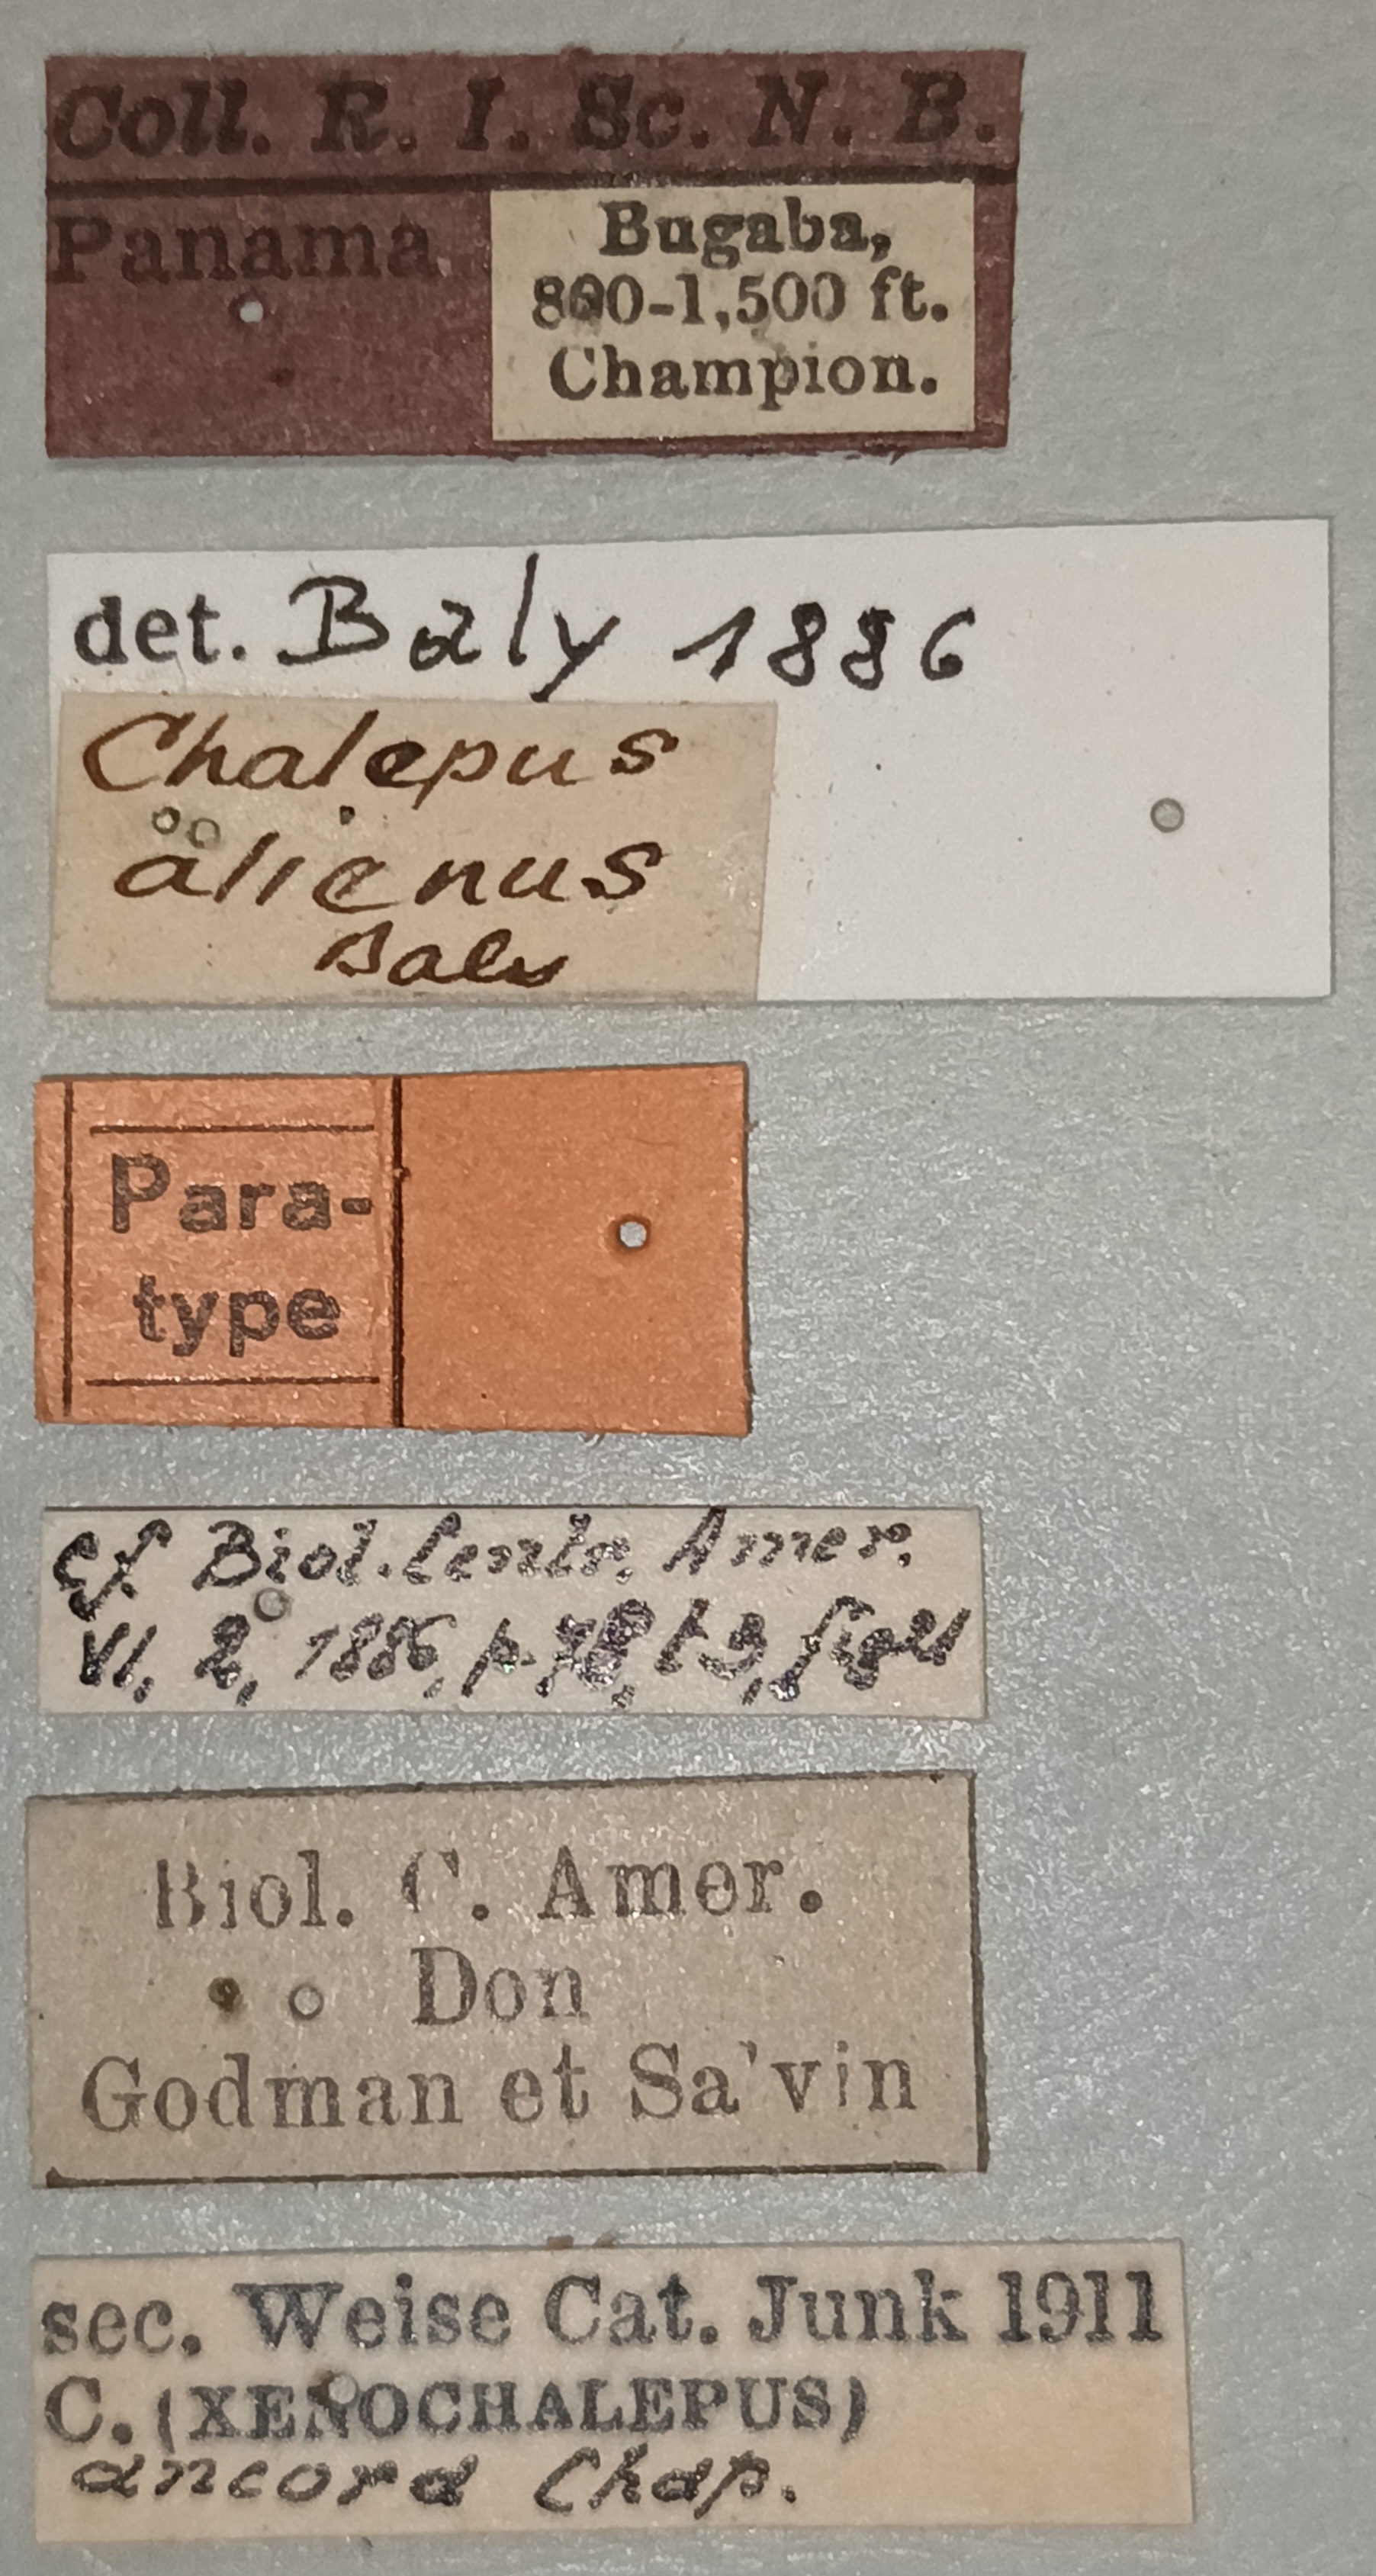 Coll. R. I. Sc. N. B.
Panama
Bugaba,
800-1,500 ft.
Champion.
det. Baly 1886
Chalepus
alienus
Baly
Para-
type
cf Biol. Centr. Amer.
VI, 2, 1886, p. t 3, fig
Biol. C. Amer.
Don
Godman et Sa'vin
sec. Weise Cat. Junk 1911
C. (XENOCHALEPUS)
ancora Chap.